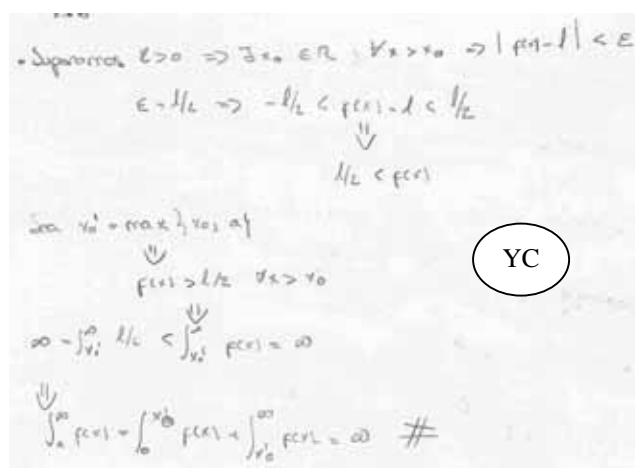 • Suponemos l>0 => ∃x₀ ∈ R : ∀x>x₀ => |f(x)-l| < ε
ε = l/2 => -l/2 < f(x)-l < l/2
⇓
l/2 < f(x)
Sea x₀' = max {x₀, a}
⇓
f(x) > l/2 ∀x > x₀
⇓
YC
∞ = ∫_{x₀'}^∞ l/2 < ∫_{x₀'}^∞ f(x) = ∞
⇓
∫_a^∞ f(x) = ∫_a^{x₀'} f(x) + ∫_{x₀'}^∞ f(x) = ∞ #